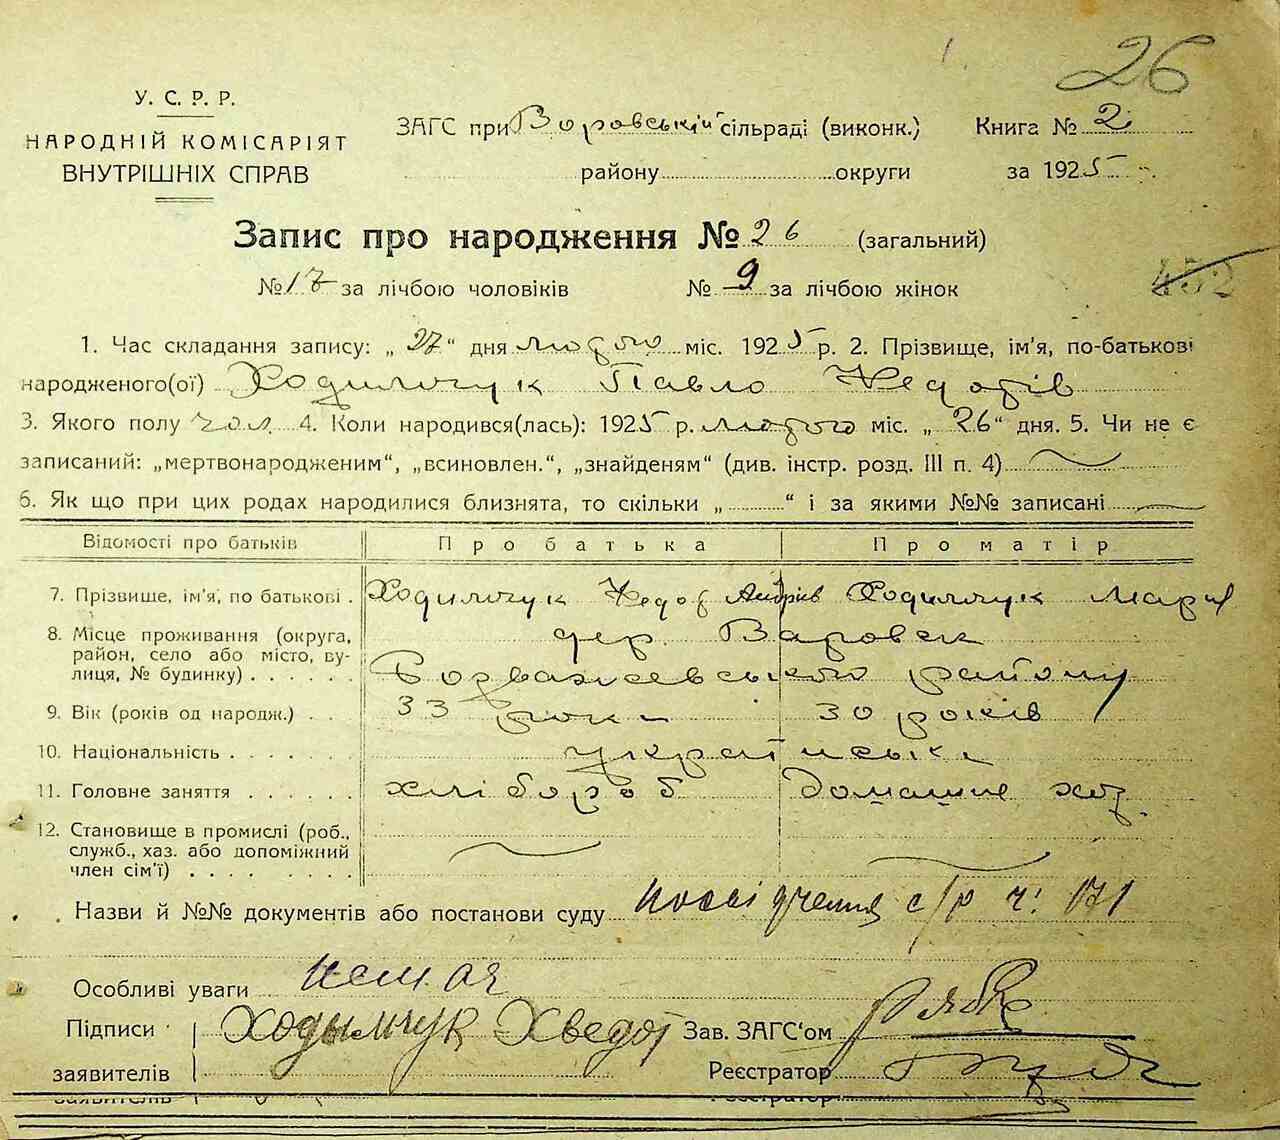 26
У. С. Р. Р.
НАРОДНІЙ КОМІСАРІЯТ
ВНУТРІШНІХ СПРАВ
ЗАГС при Воровській сільраді (виконк.) Книга № 2
району округи за 1925
Запис про народження № 26 (загальний)
№ 17 за лічбою чоловіків № 9 за лічбою жінок
452
1. Час складання запису: „27“ дня лютого міс. 1925 р. 2. Прізвище, ім’я, по-батькові
народженого(ої) Ходимчук Павло Федотів
3. Якого полу чол 4. Коли народився(лась): 1925 р. лютого міс. „26“ дня. 5. Чи не є
записаний: „мертвонародженим“, „всиновлен.“, „знайденям“ (див. інстр. розд. III п. 4)
6. Як що при цих родах народилися близнята, то скільки „ “ і за якими №№ записані
Відомості про батьків Про батька Про матір
7. Прізвище, ім’я, по батькові . Ходимчук Федот Андрів Ходимчук Марія
8. Місце проживання (округа, район, село або місто, вулиця, № будинку) . . . . . . дер. Варовск
Розважевського району
9. Вік (років од народж.) . . 33 роки 30 років
10. Національність . . . . . . українська
11. Головне заняття . . . . . . хлібороб Домашнє хоз.
12. Становище в промислі (роб., служб., хаз. або допоміжний член сім’ї) . . . . . . . .
Назви й №№ документів або постанови суду посвідчення с/р ч: 171
Особливі уваги немая
Підписи Ходымчук Хведот Зав. ЗАГС‘ом
заявителів Реєстратор
заявителів Реєстратор